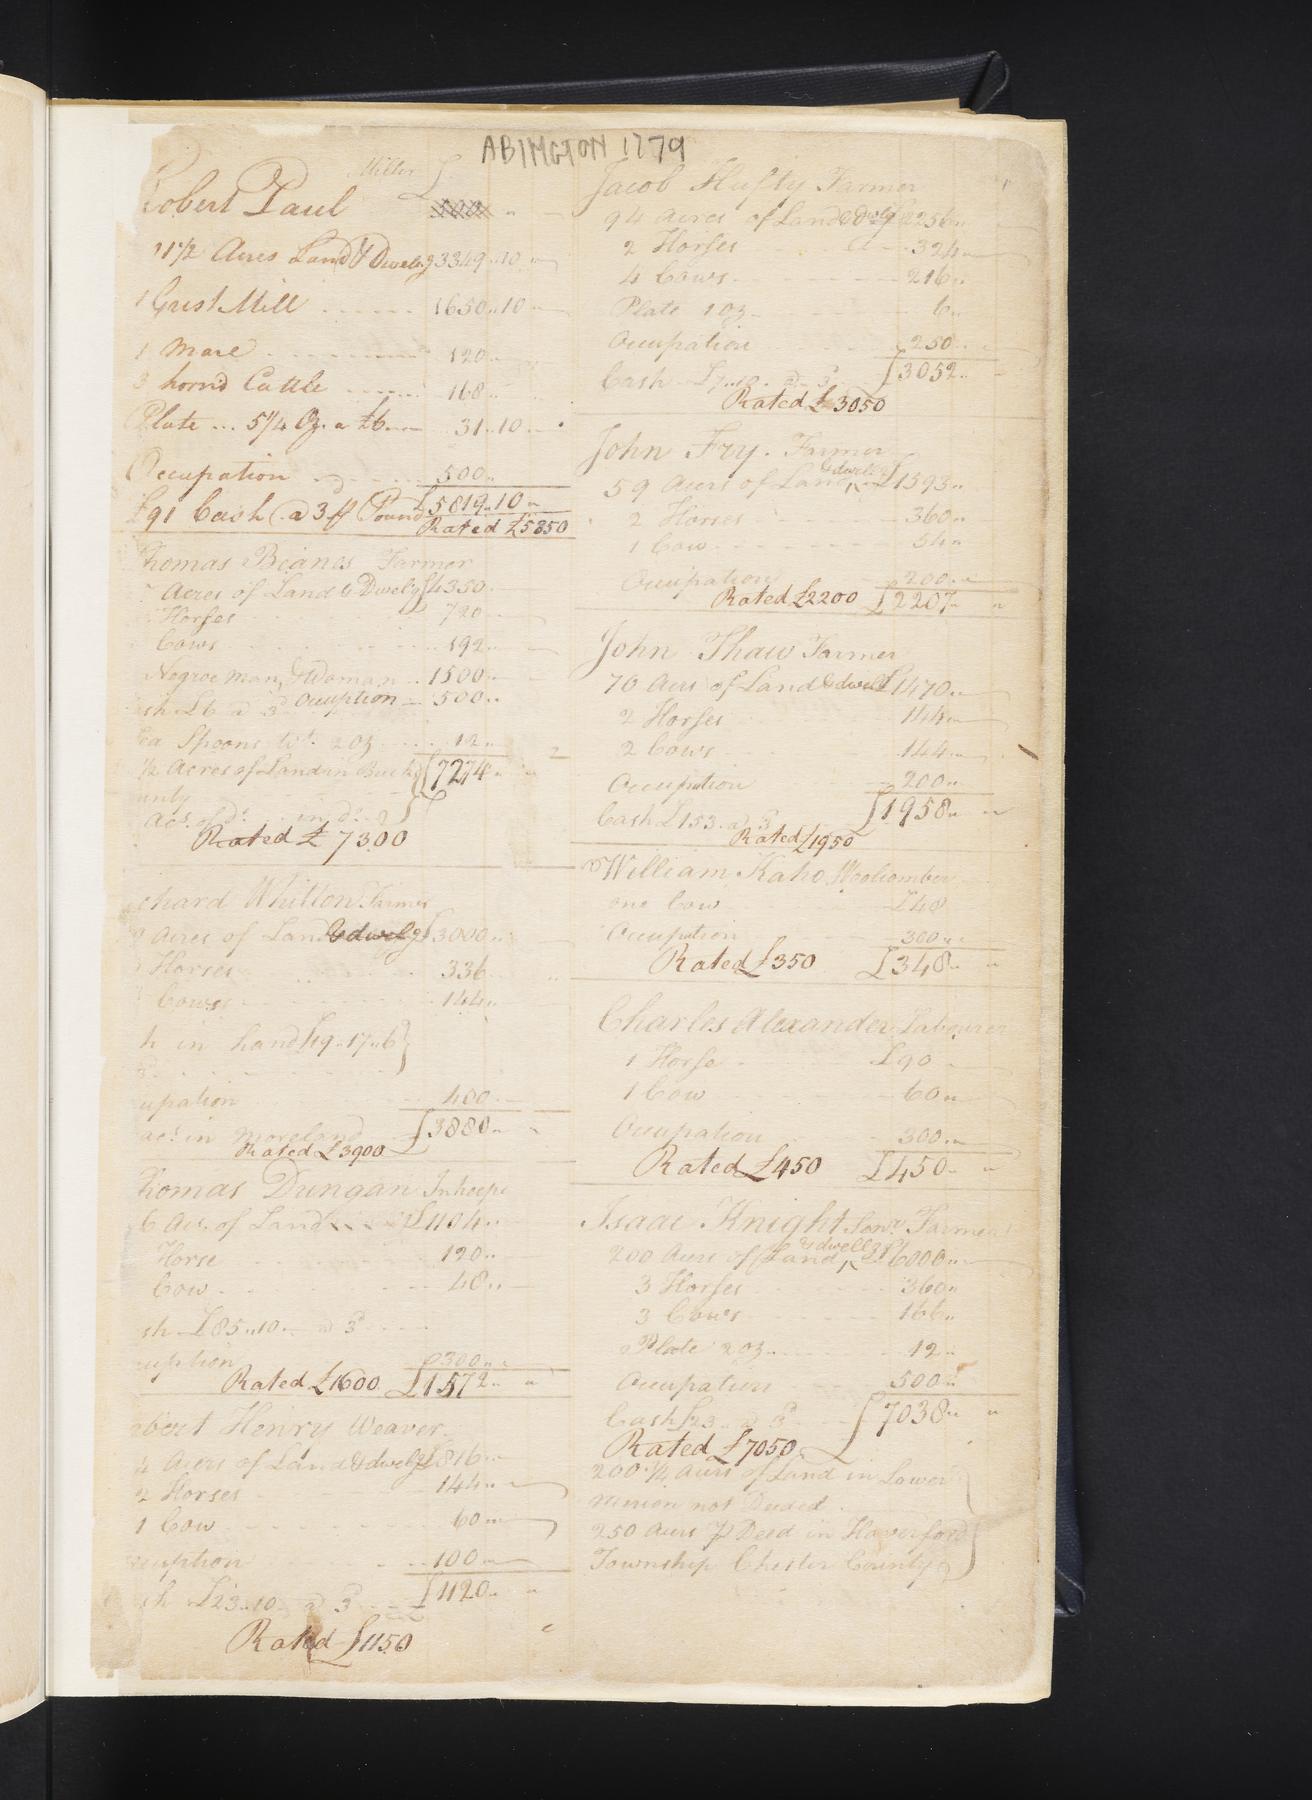 ABINGTON 1779
Miller £
Robert Paul
11½ Acres Land & Dwelg 3349..10
1 Grist Mill 1650..10
1 Mare 120..
3 hornd Cattle 168
Plate ... 5¼ Oz. a £6 31..10
Occupation 500..
£91 Cash @ 3 ₱ Pound £5819..10
Rated £5850
Thomas Beanes Farmer
Acres of Land & Dwelg £4350
Horses 720
Cows 192
Negroe man, & Woman 1500
sh £6 a 3d Occuption 500..
Tea Spoons wt. 2 oz 12..
½ Acres of Land in Bucks £7274
unty
acs. of do. in do.
Rated £7300
chard Whitton Farmer
Acres of Land & dwelg £3000..
Horses 336
Cows 144
h in hand £19..17..6
upation 400
acs. in Moreland £3880
Rated £3900
Thomas Dungan Inkeepe
6 Acs. of Land £1104..
Horse 120..
Cow 48..
sh £85..10 a 3d
uption 300..
Rated £1600 £1572..
obert Henry Weaver
4 Acres of Land & dwelg £816
2 Horses 144
1 Cow 60
cuption 100
sh £23..10 a 3d £1120
Rated £1150
Jacob Hufty Farmer
94 Acres of Land & dwelg £2256..
2 Horses 324
4 Cows 216..
Plate 1 oz 6..
Occupation 250
Cash £7..10 a 3d £3052..
Rated £3050
John Fry. Farmer
& dwellg
59 Acres of Land ^ £1593..
2 Horses 360..
1 Cow 54
Occupation 200..
Rated £2200 £2207..
John Thaw Farmer
70 Acrs of Land & dwell £1470..
2 Horses 144
2 Cows 144
Occupation 200
Cash £153 a 3d £1958
Rated £1950
William Kaho Woolcomber
one Cow £48
Occupation 300
Rated £350 £348..
Charles Alexander Labourer
1 Horse £90
1 Cow 60
Occupation 300
Rated £450 £450
Isaac Knight Senr. Farmer
& dwellg
200 Acres of Land ^ £6000..
3 Horses 360..
3 Cows 166..
Plate 2 oz 12
Occupation 500
Cash £23 a 3d £7038
Rated £7050
200¼ Acres of Land in Lower
merion not Deeded.
250 Acres ₱ Deed in Haverford
Township Chester County